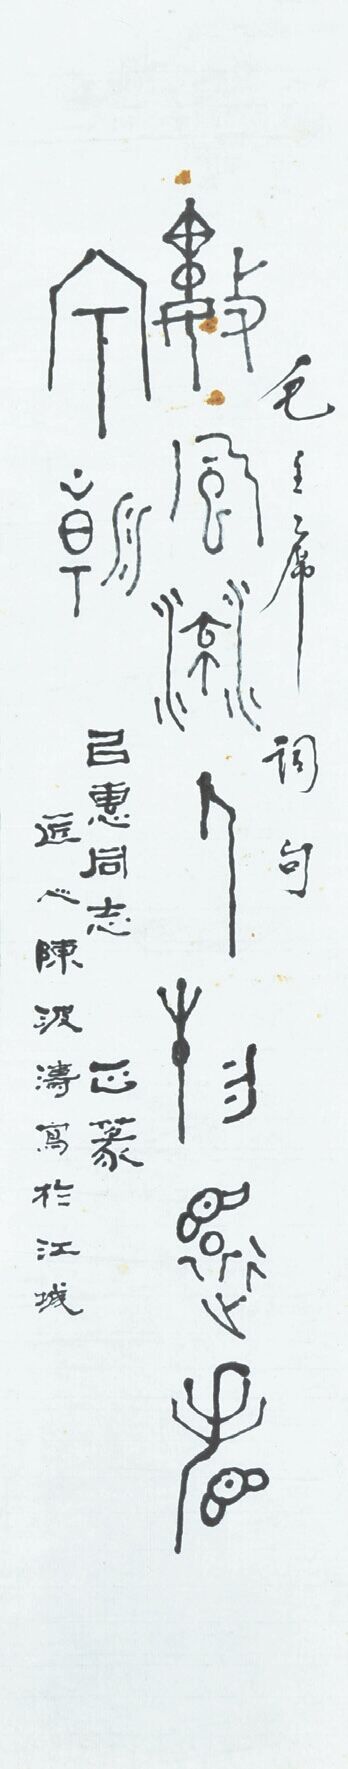 毛主席词句
数风流人物还看
今朝
吕惠同志 正篆
匠心陳波濤寫於江城